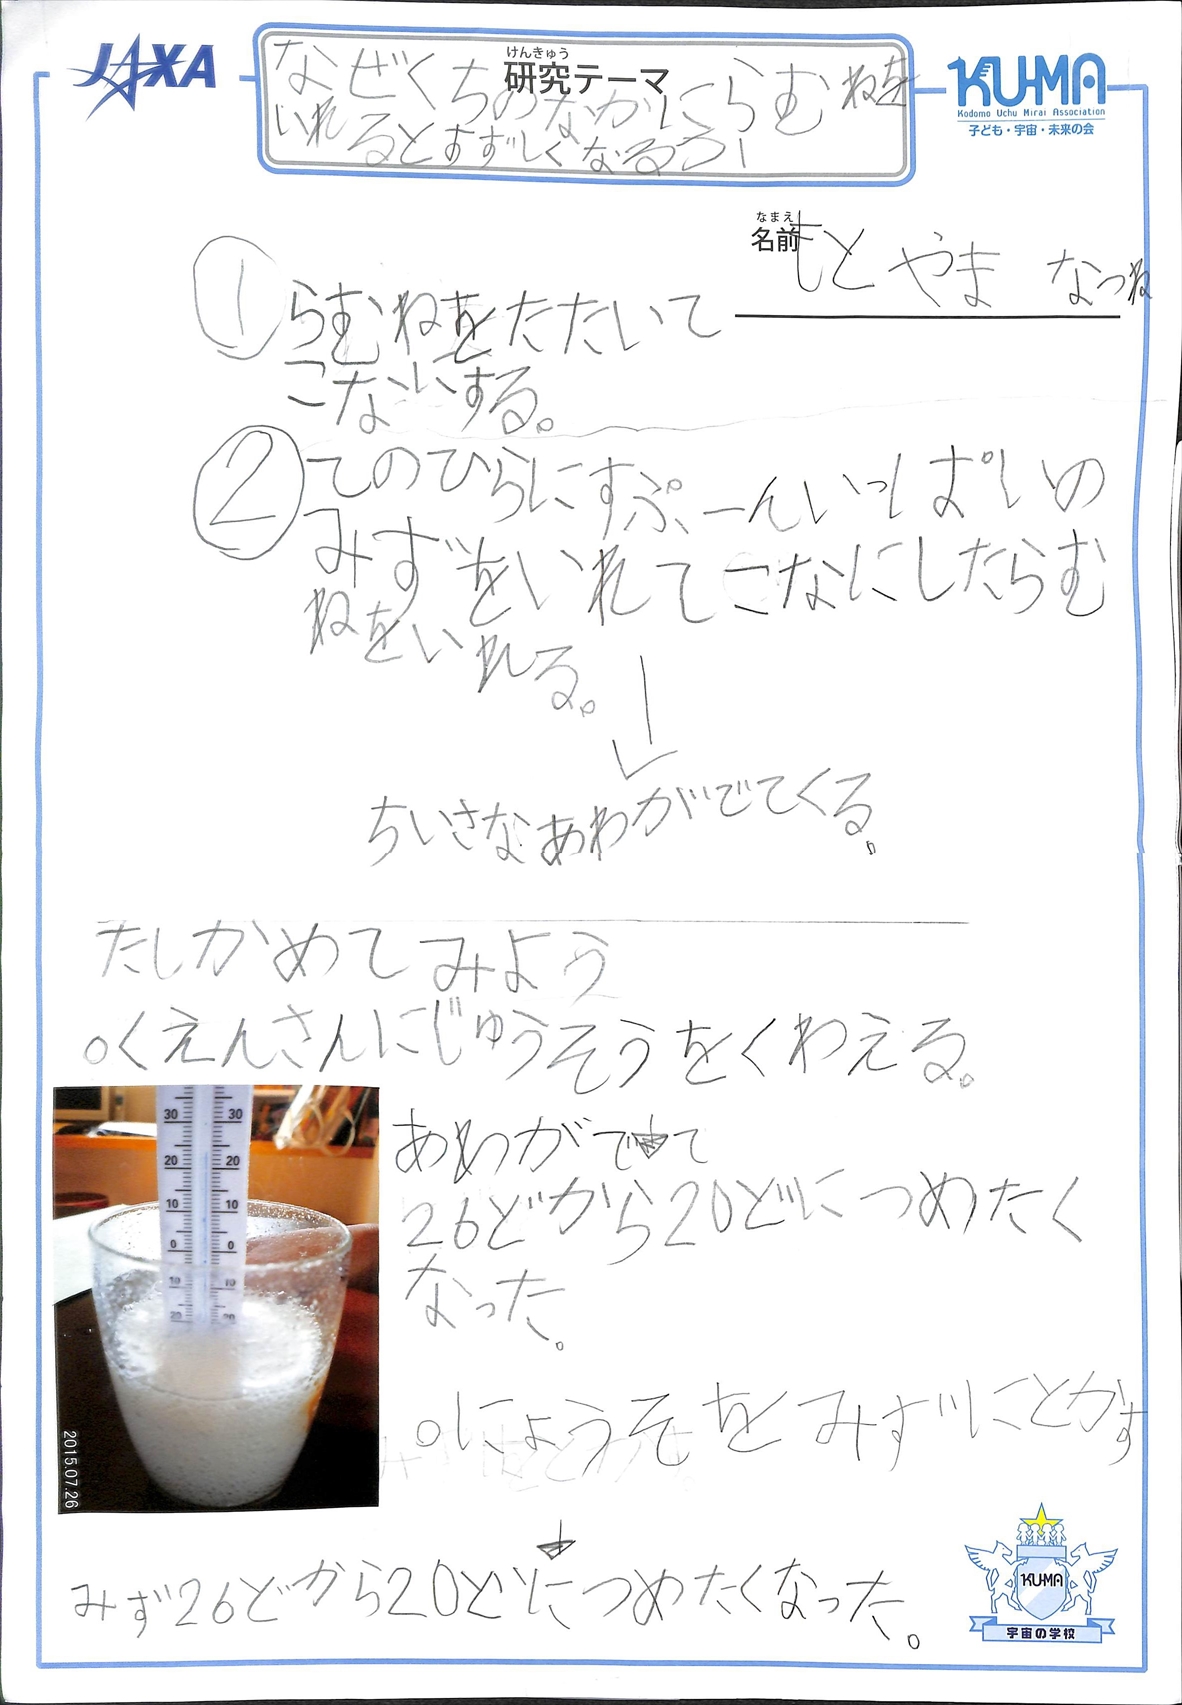 JAXA
けんきゅう
研究テーマ
なぜくちのなかにらむねを
いれるとすずしくなるろー
KU-MA
Kodomo Uchu Mirai Association
子ども・宇宙・未来の会
なまえ
名前
もとやま なつね
① らむねをたたいて
こなにする。
② てのひらにすぷーんいっぱいの
みずをいれてこなにしたらむ
ねをいれる。
↓
ちいさなあわがでてくる。
たしかめてみよう
○くえんさんにじゅうそうをくわえる。
30 30
20 20
10 10
0 0
10 10
20 20
2015.07.26
あわがでて
26どから20どにつめたく
なった。
○にょうそをみずにとかす
↓
みず26どから20どにつめたくなった。
KU-MA
宇宙の学校